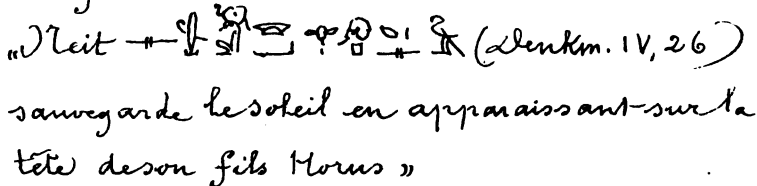 „Neit (Denkm. IV, 26)
sauvegarde le soleil en apparaissant sur la
tête de son fils Horus »